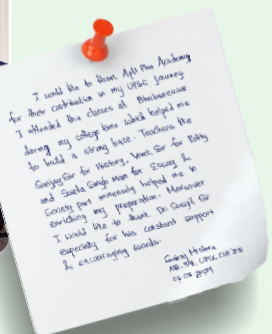 I would like to thank Apti Plus Academy
for their contribution in my UPSC Journey.
I attended the classes at Bhubaneswar
during my college time which helped me
to build a strong base. Teachers like
Sanjay Sir for History, Vineet Sir for Polity
and Sweta Singh Mam for Essay &
Society part immensely helped me in
enriching my preparation. Moreover
I would like to thank Dr. Sanjit Sir
especially for his constant support
& encouraging words.
Mishra
UPSC CSE